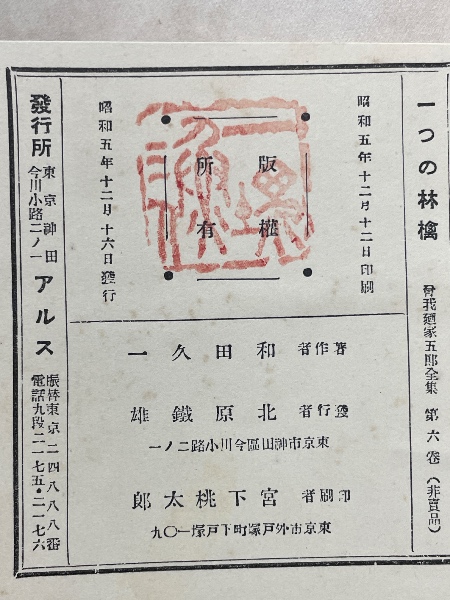 一つの林檎
曾我廼家五郎全集 第六卷(非賣品)
昭和五年十二月十二日印刷
昭和五年十二月十六日發行
版權
所有
著作者 和田久一
發行者 北原鐵雄
東京市神田區今川小路二ノ一
印刷者 宮下桃太郎
東京市外戸塚町下戸塚一〇九
發行所
東京神田
今川小路二ノ一
アルス
振替東京二四八八八番
電話九段二一七五・二一七六